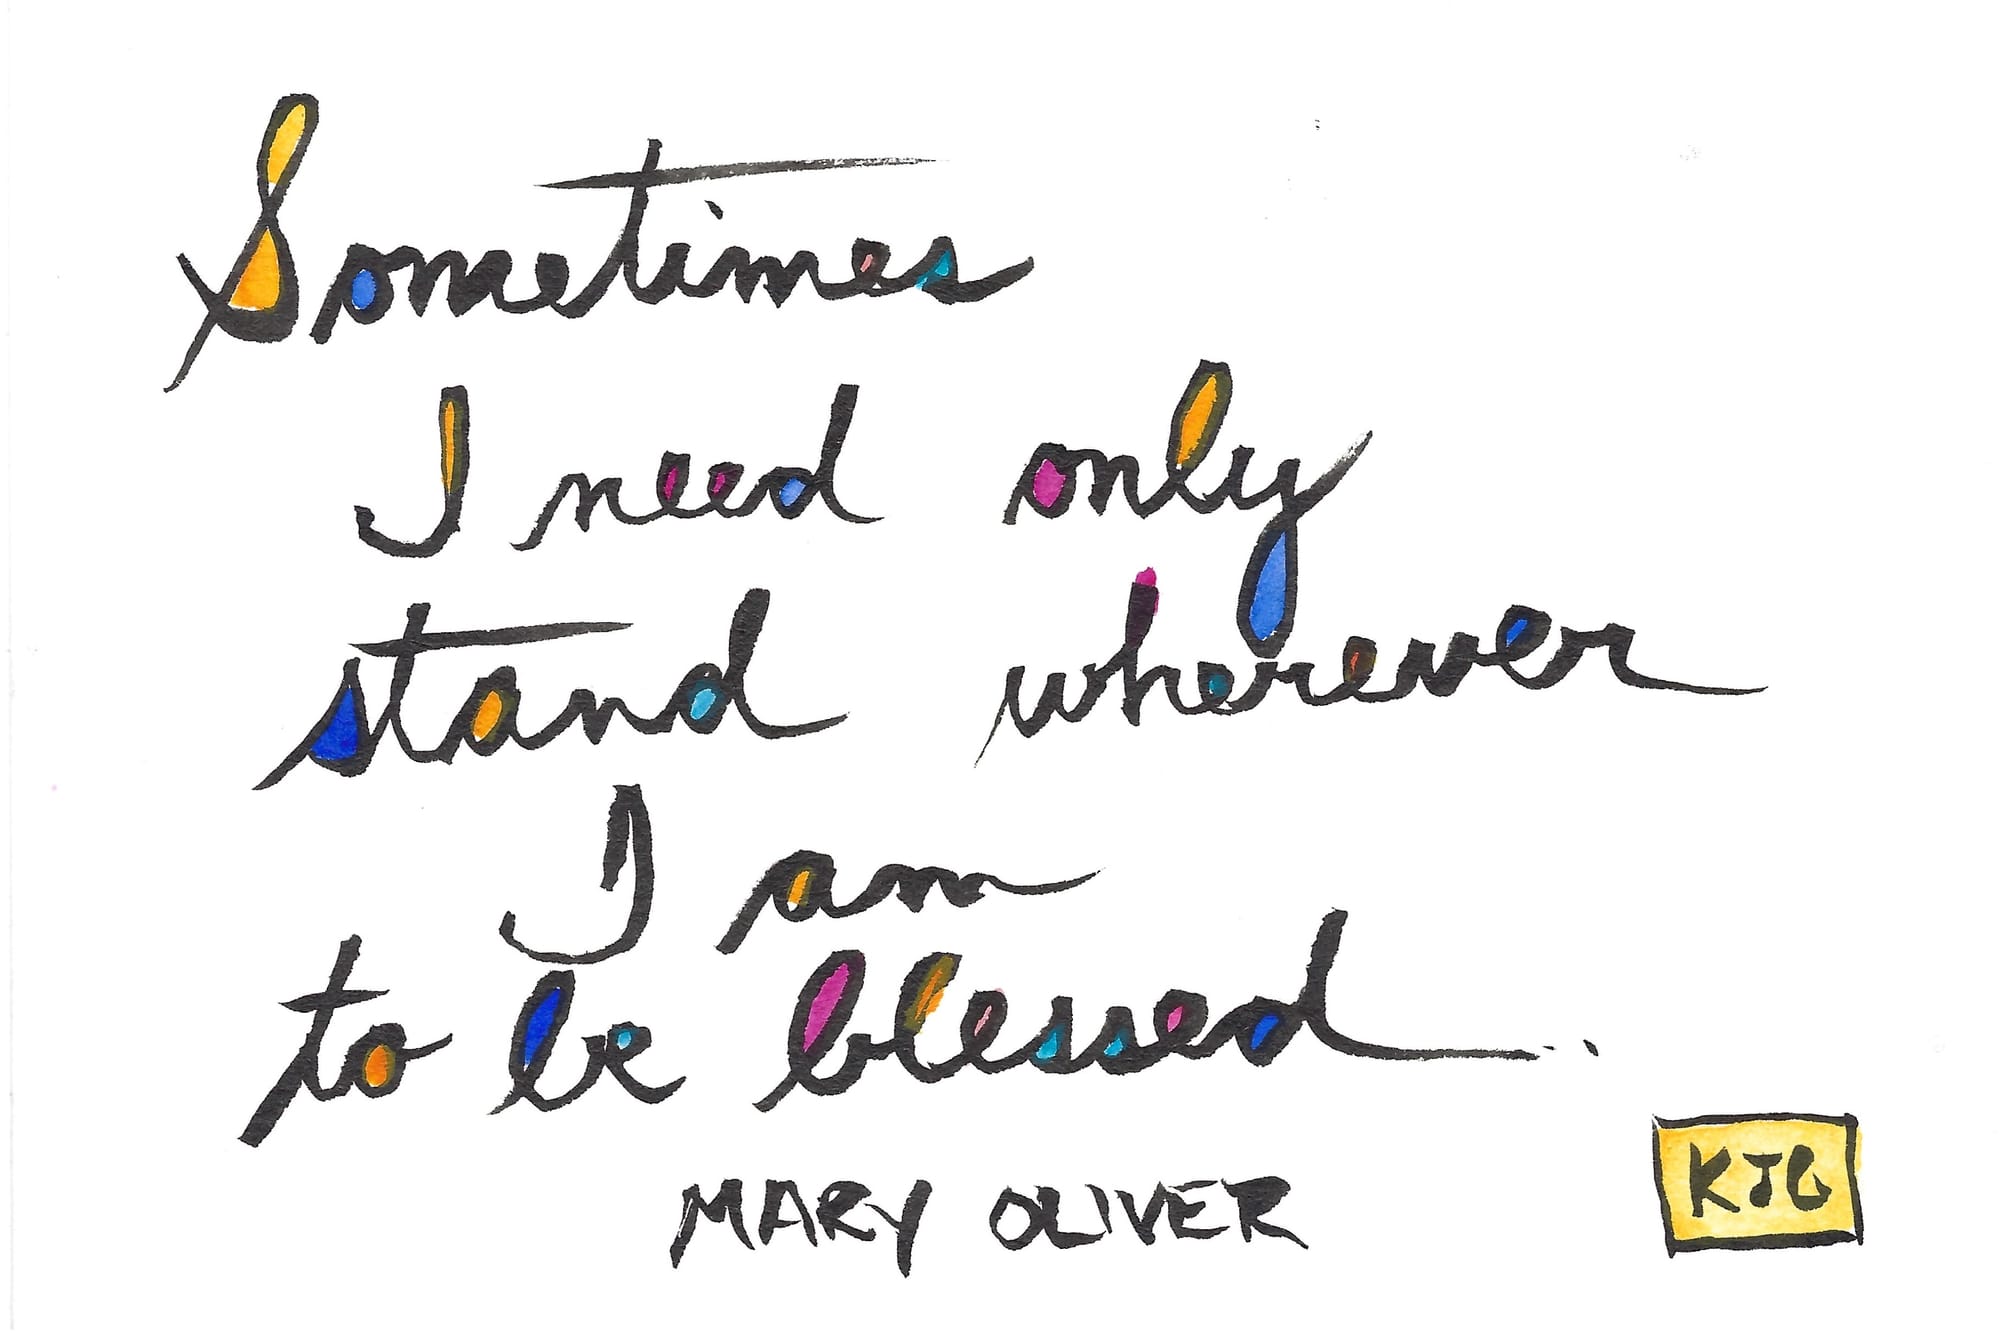 Sometimes
I need only
stand wherever
I am
to be blessed..
MARY OLIVER
KJG